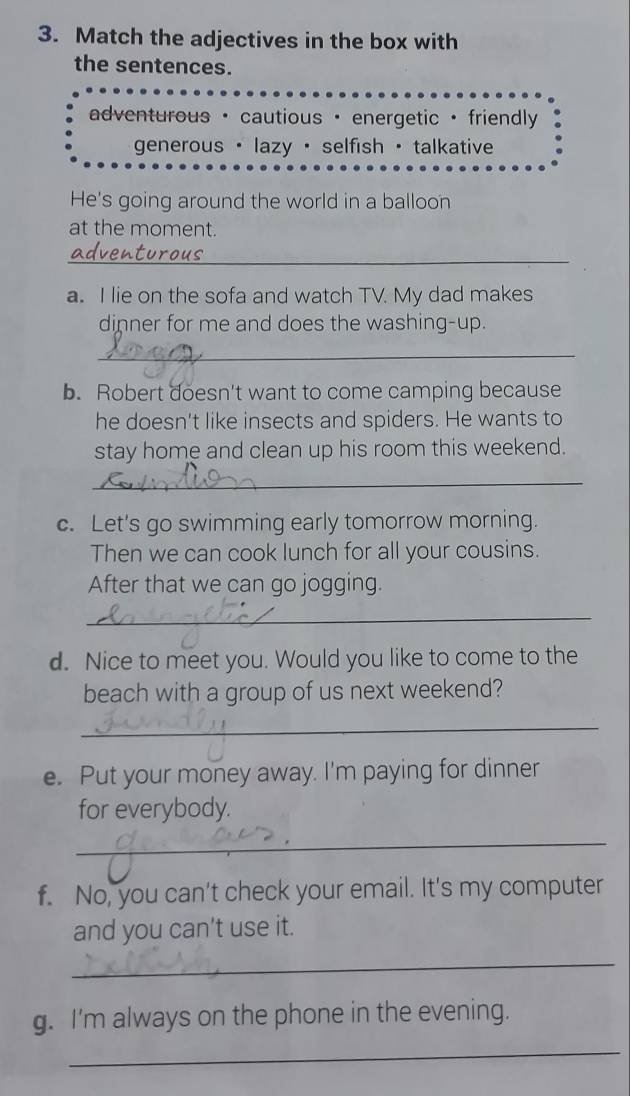 3. Match the adjectives in the box with
the sentences.
adventurous • cautious • energetic • friendly
generous • lazy • selfish • talkative
He's going around the world in a balloon
at the moment.
adventurous
a. I lie on the sofa and watch TV. My dad makes
dinner for me and does the washing-up.
b. Robert doesn't want to come camping because
he doesn't like insects and spiders. He wants to
stay home and clean up his room this weekend.
c. Let's go swimming early tomorrow morning.
Then we can cook lunch for all your cousins.
After that we can go jogging.
energetic
d. Nice to meet you. Would you like to come to the
beach with a group of us next weekend?
friendly
e. Put your money away. I'm paying for dinner
for everybody.
f. No, you can't check your email. It's my computer
and you can't use it.
selfish
g. I'm always on the phone in the evening.